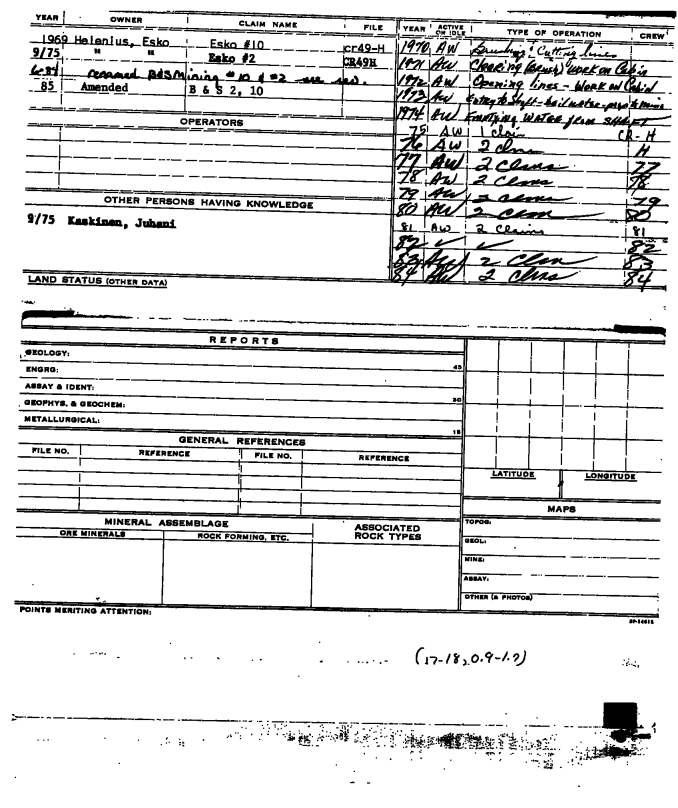 YEAR OWNER CLAIM NAME FILE
1969 Helenius, Esko Esko #10 cr49-H
9/75 " " Esko #2 CR49H
6-84 renamed B&S Mining #10 & #2
85 Amended B & S 2, 10
OPERATORS
OTHER PERSONS HAVING KNOWLEDGE
9/75 Kaskinen, Juhani
LAND STATUS (OTHER DATA)
YEAR ACTIVE OR IDLE TYPE OF OPERATION CREW
1970 AW Brushing & Cutting lines
1971 AW Clearing (brush) work on Cabin
1972 AW Opening lines - work on Cabin
1973 AW Entry to shaft - bail water - prep to mine
1974 AW Emptying WATER from SHAFT
75 AW 1 claim CR-H
76 AW 2 clms H
77 AW 2 Clms 77
78 AW 2 Clms 78
79 AW 2 clms 79
80 AW 2 Clm 80
81 AW 2 Claims 81
82 ✓ ✓ 82
83 AW 2 Clm 83
84 AW 2 Clms 84
REPORTS
GEOLOGY:
ENGRG: 45
ASSAY & IDENT:
GEOPHYS. & GEOCHEM: 30
METALLURGICAL: 15
GENERAL REFERENCES
FILE NO. REFERENCE FILE NO. REFERENCE
LATITUDE LONGITUDE
MINERAL ASSEMBLAGE ASSOCIATED ROCK TYPES
ORE MINERALS ROCK FORMING, ETC.
MAPS
TOPOG:
GEOL:
MINE:
ASSAY:
OTHER (& PHOTOS)
POINTS MERITING ATTENTION:
(17-18, 0.9-1.7)